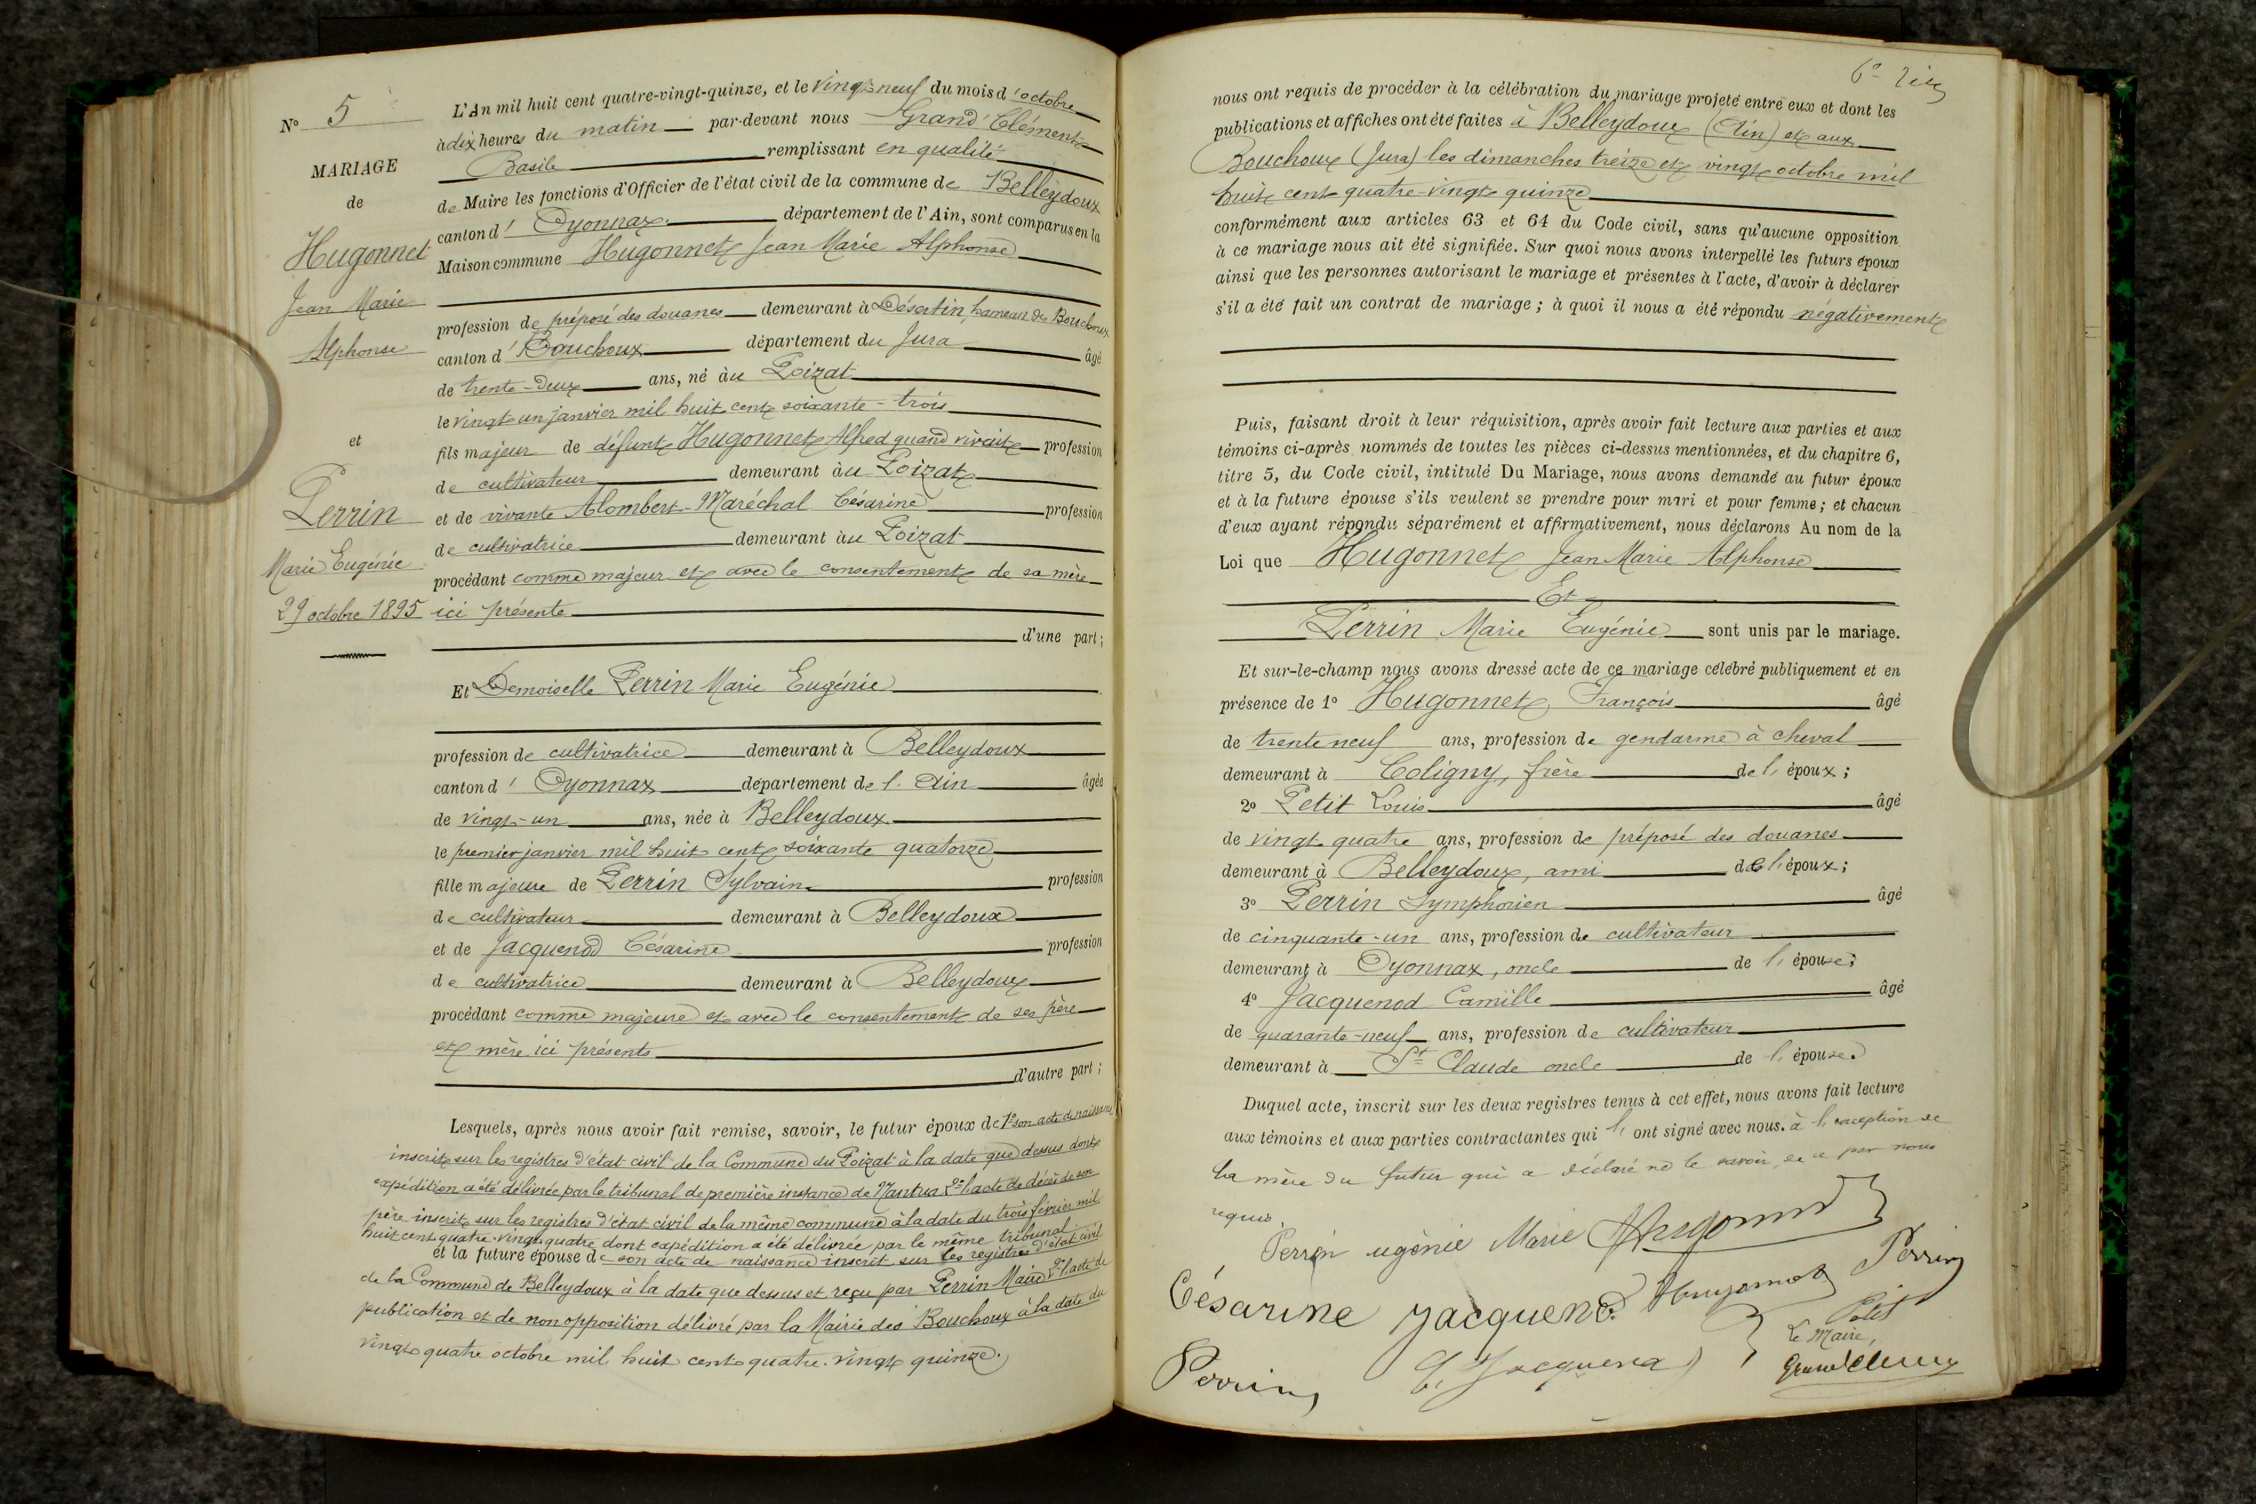 Nº 5
MARIAGE
de
Hugonnet
Jean Marie
Alphonse
et
Perrin
Marie Eugénie
29 octobre 1895
L'An mil huit cent quatre-vingt-quinze, et le vingt neuf du mois d'octobre
à dix heures du matin par-devant nous Grand'Clément
Basile remplissant en qualité
de Maire les fonctions d'Officier de l'état civil de la commune de Belleydoux
canton d'Oyonnax département de l'Ain, sont comparus en la
Maison commune Hugonnet Jean Marie Alphonse
profession de préposé des douanes demeurant à Désertin, hameau des Bouchoux
canton d' Bouchoux département du Jura âgé
de trente-deux ans, né au Poizat
le vingt un janvier mil huit cent soixante-trois
fils majeur de défunt Hugonnet Alfred quand vivait profession
de cultivateur demeurant au Poizat
et de vivante Alombert-Maréchal Césarine profession
de cultivatrice demeurant au Poizat
procédant comme majeur et avec le consentement de sa mère
ici présente
d'une part;
Et Demoiselle Perrin Marie Eugénie
profession de cultivatrice demeurant à Belleydoux
canton d'Oyonnax département de l'Ain âgée
de vingt-un ans, née à Belleydoux
le premier janvier mil huit cent soixante quatorze
fille majeure de Perrin Sylvain profession
de cultivateur demeurant à Belleydoux
et de Jacquenod Césarine profession
de cultivatrice demeurant à Belleydoux
procédant comme majeure et avec le consentement de ses père
et mère ici présents
d'autre part;
Lesquels, après nous avoir fait remise, savoir, le futur époux de 1º son acte de naissance
inscrit sur les registres d'état civil de la Commune du Poizat à la date que dessus dont
expédition a été délivrée par le tribunal de première instance de Nantua 2º l'acte de décès de son
père inscrit sur les registres d'état civil de la même commune à la date du trois février mil
huit cent quatre-vingt quatre dont expédition a été délivrée par le même tribunal
et la future épouse de son acte de naissance inscrit sur les registres d'état civil
de la Commune de Belleydoux à la date que dessus et reçu par Perrin Maire 2º l'acte de
publication et de non opposition délivré par la Mairie des Bouchoux à la date du
vingt quatre octobre mil huit cent quatre-vingt quinze.
nous ont requis de procéder à la célébration du mariage projeté entre eux et dont les
publications et affiches ont été faites à Belleydoux (Ain) et aux
Bouchoux (Jura) les dimanches treize et vingt octobre mil
huit cent quatre-vingt quinze
conformément aux articles 63 et 64 du Code civil, sans qu'aucune opposition
à ce mariage nous ait été signifiée. Sur quoi nous avons interpellé les futurs époux
ainsi que les personnes autorisant le mariage et présentes à l'acte, d'avoir à déclarer
s'il a été fait un contrat de mariage; à quoi il nous a été répondu négativement
Puis, faisant droit à leur réquisition, après avoir fait lecture aux parties et aux
témoins ci-après nommés de toutes les pièces ci-dessus mentionnées, et du chapitre 6,
titre 5, du Code civil, intitulé Du Mariage, nous avons demandé au futur époux
et à la future épouse s'ils veulent se prendre pour mari et pour femme; et chacun
d'eux ayant répondu séparément et affirmativement, nous déclarons Au nom de la
Loi que Hugonnet Jean Marie Alphonse
Et
Perrin Marie Eugénie sont unis par le mariage.
Et sur-le-champ nous avons dressé acte de ce mariage célébré publiquement et en
présence de 1º Hugonnet François âgé
de trente neuf ans, profession de gendarme à cheval
demeurant à Coligny, frère de l'époux;
2º Petit Louis âgé
de vingt quatre ans, profession de préposé des douanes
demeurant à Belleydoux, ami de l'époux;
3º Perrin Symphorien âgé
de cinquante-un ans, profession de cultivateur
demeurant à Oyonnax, oncle de l'épouse;
4º Jacquenod Camille âgé
de quarante-neuf ans, profession de cultivateur
demeurant à St Claude oncle de l'épouse.
Duquel acte, inscrit sur les deux registres tenus à cet effet, nous avons fait lecture
aux témoins et aux parties contractantes qui l'ont signé avec nous. à l'exception de
la mère du futur qui a déclaré ne le savoir, de ce par nous
requis.
Perrin ugènie Marie Hugonnet
Césarine Jacquenod Hugonnet Perrin
Petit
Le Maire,
Perrin C. Jacquenod Grand'Clément